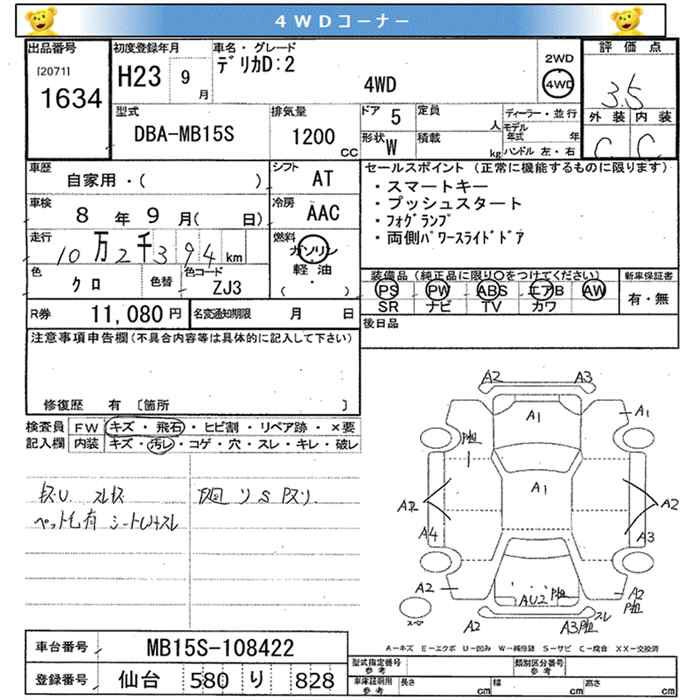 4WDコーナー
出品番号
[2071]
1634
初度登録年月
H23 9月
車名・グレード
デリカD:2
4WD
2WD
4WD
評価点
3.5
外装 内装
C C
型式
DBA-MB15S
排気量
1200 cc
ドア 5
定員 人
形状 W
積載 kg
ディーラー・並行
モデル年式 年
ハンドル 左・右
車歴
自家用・( )
シフト
AT
車検
8年9月( 日)
冷房
AAC
走行
10万2千394km
燃料
ガソリン
軽油
( ・ )
色
クロ
色替
色コード
ZJ3
R券
11,080円
名変通知期限 月 日
セールスポイント (正常に機能するものに限ります)
・スマートキー
・プッシュスタート
・フォグランプ
・両側パワースライドドア
装備品(純正品に限り○をつけてください)
PS PW ABS エアB AW
SR ナビ TV カワ
新車保証書
有・無
後日品
注意事項申告欄(不具合内容等は具体的に記入して下さい)
修復歴 有 [箇所 ]
検査員記入欄
FW キズ・飛石・ヒビ割・リペア跡・×要
内装 キズ・汚レ・コゲ・穴・スレ・キレ・破レ
ペット毛有
A2 A3
A1 A1
A1
A2 A2
A4 A3
A2 AU2 A2
A3 スレ
A-キズ E-エクボ U-凹み W-補修跡 S-サビ C-腐食 XX-交換済
車台番号
MB15S-108422
登録番号
仙台 580 り 828
型式指定番号
参考
類別区分番号
参考
車庫証明用
参考
長さ cm
幅 cm
高さ cm